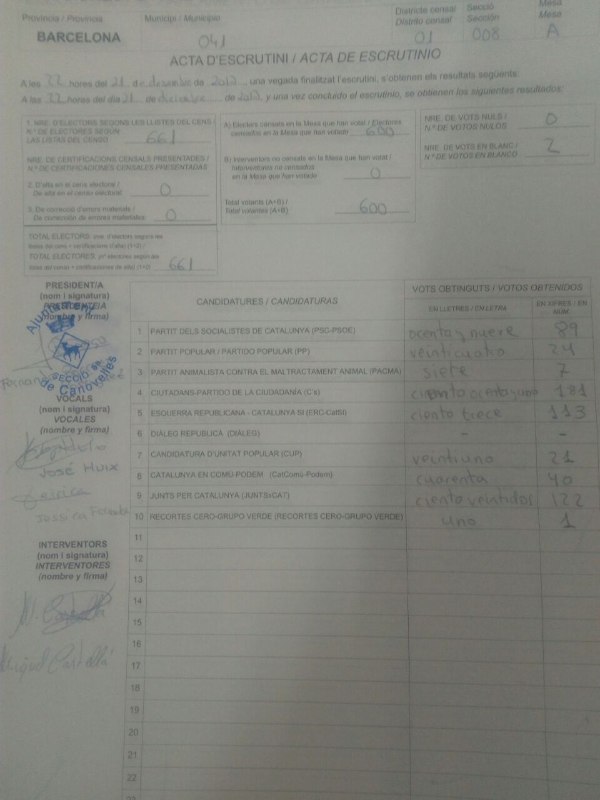 Província / Provincia
BARCELONA
Municipi / Municipio
041
Districte censal
Distrito censal
01
Secció
Sección
008
Mesa
Mesa
A
ACTA D'ESCRUTINI / ACTA DE ESCRUTINIO
A les 22 hores del 21 de de 2017, una vegada finalitzat l'escrutini, s'obtenen els resultats següents:
A las 22 horas del día 21 de diciembre de 2017, y una vez concluido el escrutinio, se obtienen los siguientes resultados:
1. NRE. D'ELECTORS SEGONS LES LLISTES DEL CENS /
N.º DE ELECTORES SEGÚN
LAS LISTAS DEL CENSO
661
NRE. DE CERTIFICACIONS CENSALS PRESENTADES /
N.º DE CERTIFICACIONES CENSALES PRESENTADAS
2. D'alta en el cens electoral /
De alta en el censo electoral
0
3. De correcció d'errors materials /
De corrección de errores materiales
0
TOTAL ELECTORS
TOTAL ELECTORES
661
A) Electors censats en la Mesa que han votat / Electores
censados en la Mesa que han votado
600
B) Interventors no censats en la Mesa que han votat /
Interventores no censados
en la Mesa que han votado
0
Total votants (A+B) /
Total votantes (A+B)
600
NRE. DE VOTS NULS /
N.º DE VOTOS NULOS
0
NRE. DE VOTS EN BLANC /
N.º DE VOTOS EN BLANCO
2
PRESIDENT/A
(nom i signatura)
(nombre y firma)
Ajuntament
SECCIÓ
de Canovelles
VOCALS
(nom i signatura)
VOCALES
(nombre y firma)
José Huix
Jessica
INTERVENTORS
(nom i signatura)
INTERVENTORES
(nombre y firma)
Miquel Castellà
CANDIDATURES / CANDIDATURAS
VOTS OBTINGUTS / VOTOS OBTENIDOS
EN LLETRES / EN LETRA
EN XIFRES / EN NÚM.
1 PARTIT DELS SOCIALISTES DE CATALUNYA (PSC-PSOE) ocenta y nueve 89
2 PARTIT POPULAR / PARTIDO POPULAR (PP) veinticuatro 24
3 PARTIT ANIMALISTA CONTRA EL MALTRACTAMENT ANIMAL (PACMA) siete 7
4 CIUTADANS-PARTIDO DE LA CIUDADANÍA (C's) ciento 181
5 ESQUERRA REPUBLICANA - CATALUNYA SÍ (ERC-CatSí) ciento trece 113
6 DIÀLEG REPÚBLICA (DIÀLEG) - -
7 CANDIDATURA D'UNITAT POPULAR (CUP) veintiuno 21
8 CATALUNYA EN COMÚ-PODEM (CatComú-Podem) cuarenta 40
9 JUNTS PER CATALUNYA (JUNTSxCAT) ciento veintidos 122
10 RECORTES CERO-GRUPO VERDE (RECORTES CERO-GRUPO VERDE) uno 1
11
12
13
14
15
16
17
18
19
20
21
22